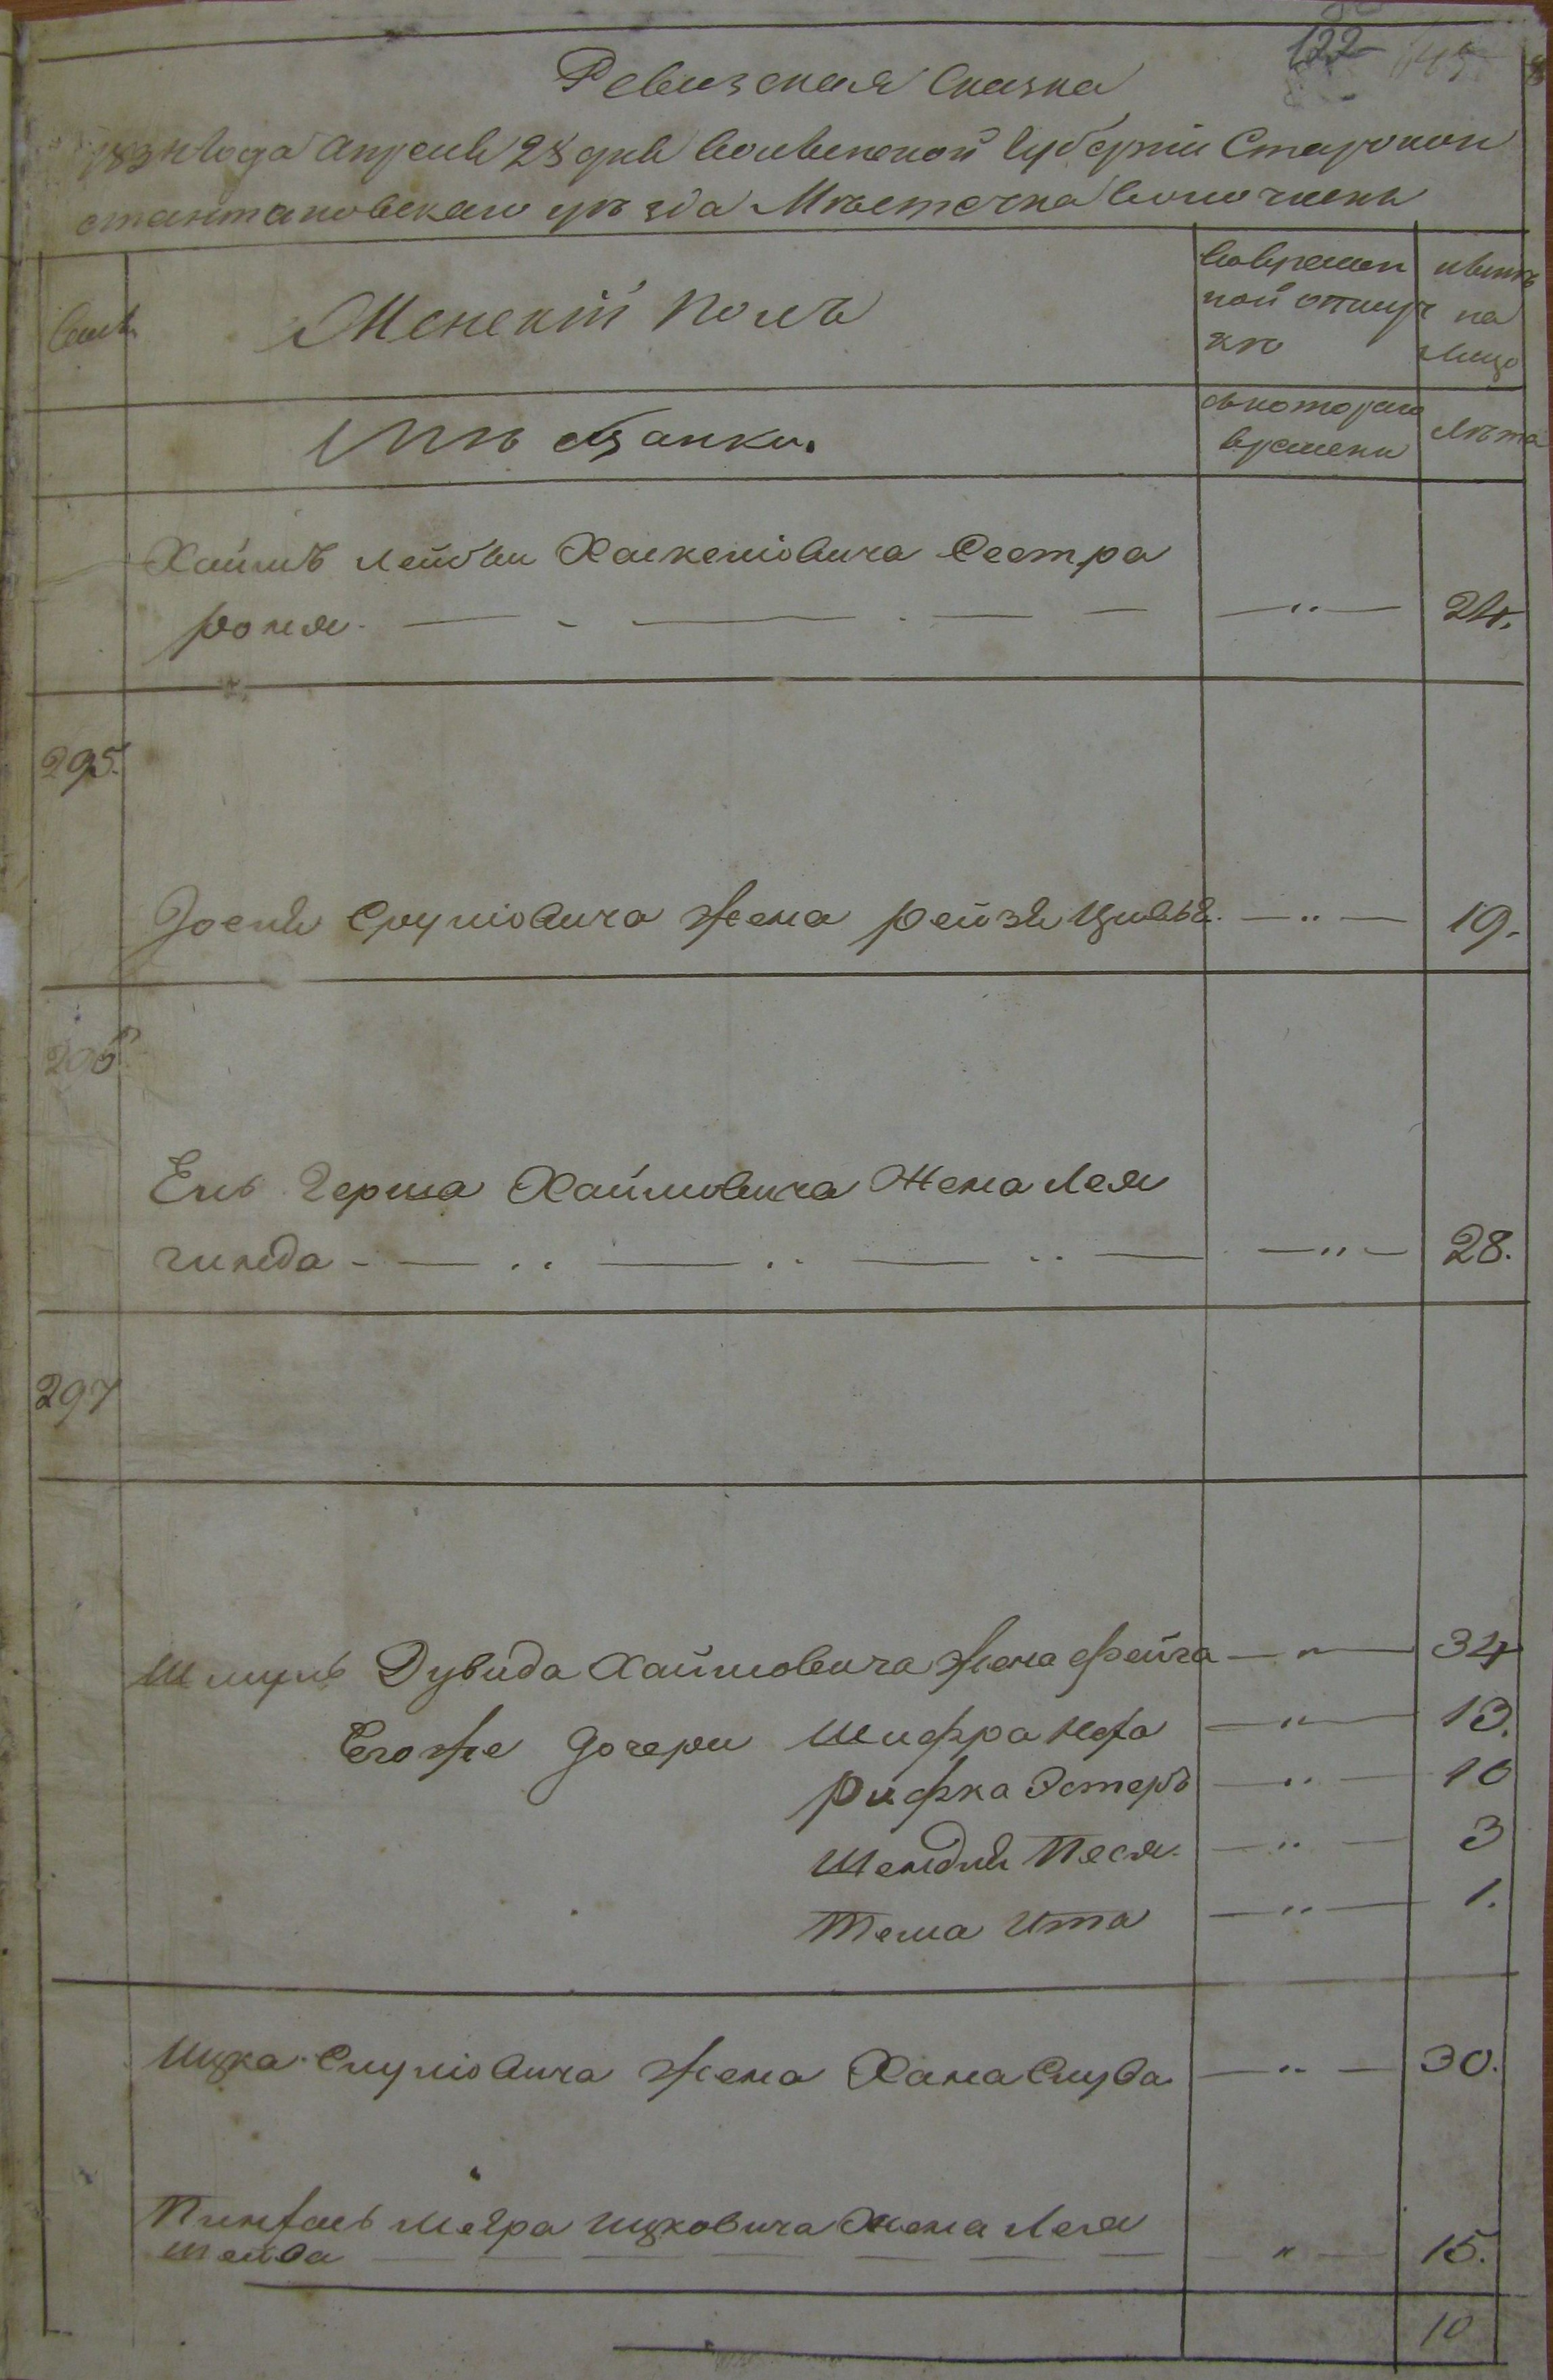 122
Ревизская Сказка
1834 года Апреля 28 дня Волынской Губернии Старокон
стантиновскаго уѣзда Мѣстечка Волочискъ
Семьи
Женскій полъ
Вовремен
ной отлуч
кѣ
нынѣ
на
лицо
Мѣщанки.
съ котораго
времени
Лѣта
Хаимъ Лейбы Хаскелювича Сестра
Рохля - - - " - 24.
295.
Йосия Срулювича жена Рейзя Цивья - " - 19.
296.
Ель Герша Хаимовича Жена Лея
Гинда - - - " - 28.
297
Шмуль Дувида Хаимовича жена Фейга - " - 34
Его же дочери Шифра Неха - " - 13.
Рифка Эстеръ - " - 10
Шендля Песя - " - 3
Тема Ита - " - 1.
Ицка Смулювича жена Хана Слува - " - 30.
Пинхаъ Меера Ицковича жена Лея
Шейва - - - " - 15.
10